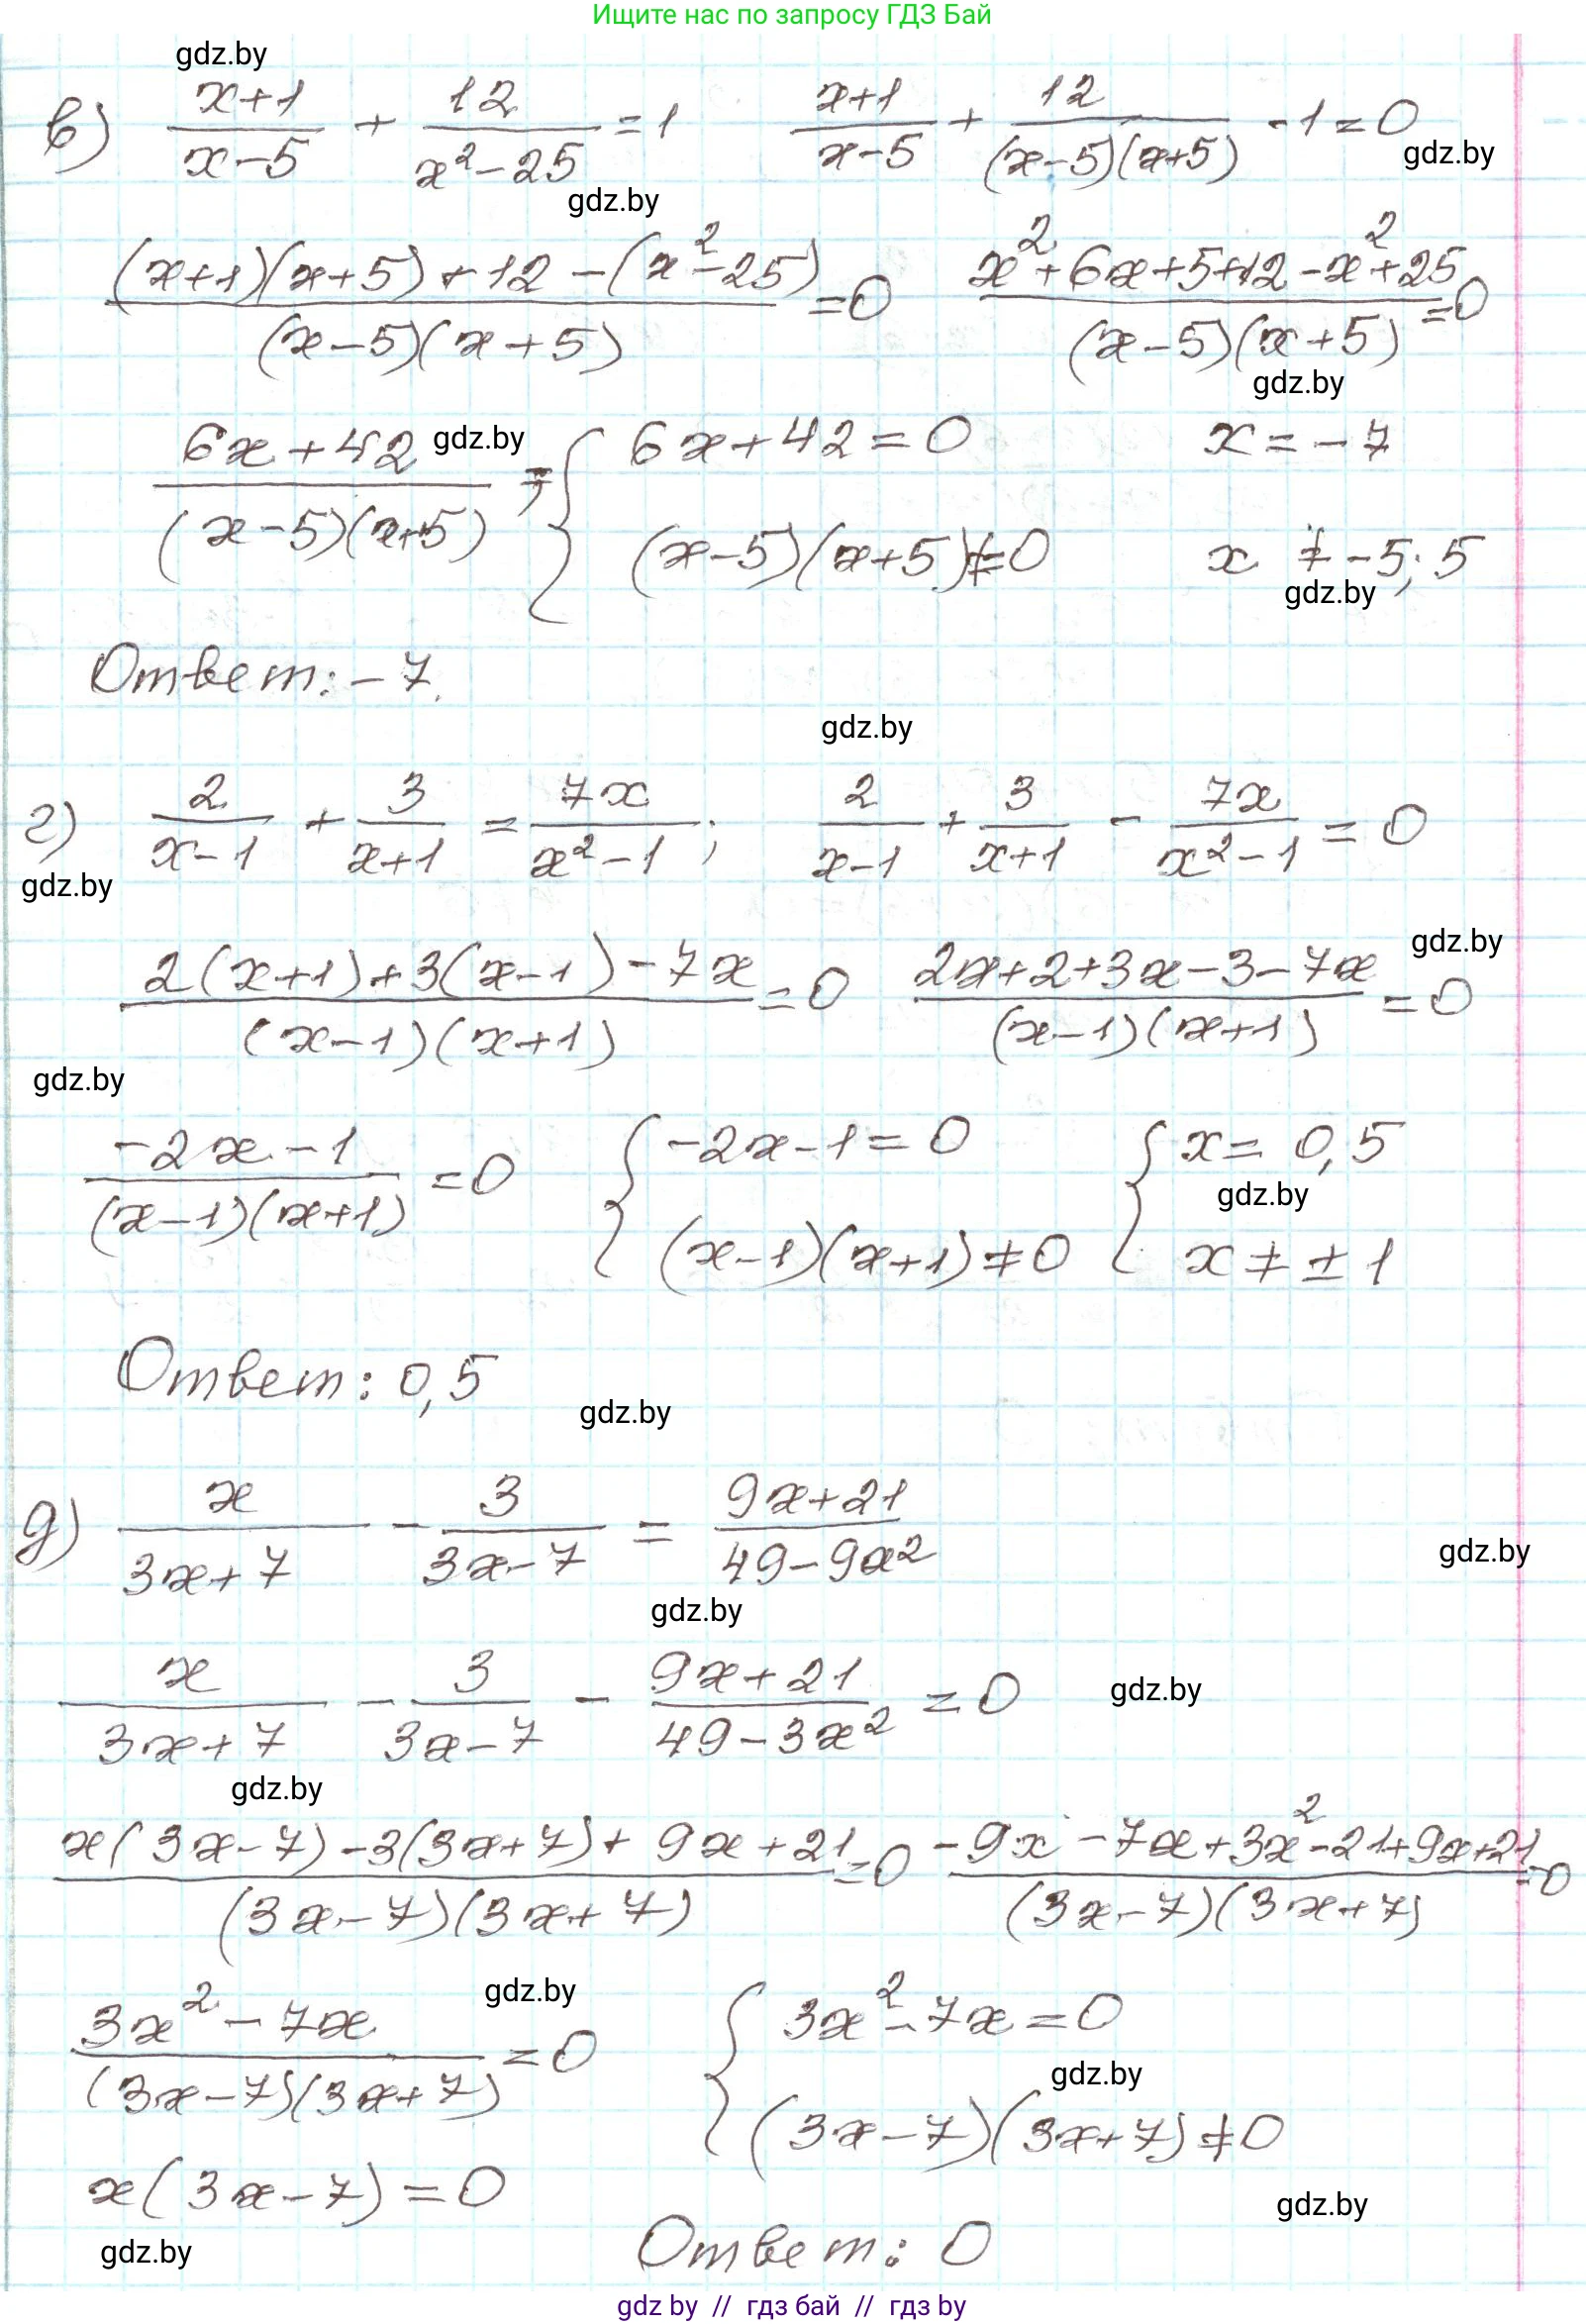 Ищите нас по запросу ГДЗ Бай
gdz.by
в) (x+1)/(x-5) + 12/(x²-25) = 1   (x+1)/(x-5) + 12/((x-5)(x+5)) - 1 = 0
gdz.by
gdz.by
((x+1)(x+5)+12-(x²-25))/((x-5)(x+5)) = 0   (x²+6x+5+12-x²+25)/((x-5)(x+5)) = 0
gdz.by
(6x+42)/((x-5)(x+5)) = ; { 6x+42=0   x=-7
gdz.by
(x-5)(x+5)≠0   x ≠ -5; 5
gdz.by
Ответ: -7.
gdz.by
г) 2/(x-1) + 3/(x+1) = 7x/(x²-1);   2/(x-1) + 3/(x+1) - 7x/(x²-1) = 0
gdz.by
gdz.by
(2(x+1)+3(x-1)-7x)/((x-1)(x+1)) = 0   (2x+2+3x-3-7x)/((x-1)(x+1)) = 0
gdz.by
(-2x-1)/((x-1)(x+1)) = 0   { -2x-1=0   { x= 0,5
gdz.by
(x-1)(x+1)≠0   x≠±1
Ответ: 0,5
gdz.by
д) x/(3x+7) - 3/(3x-7) = (9x+21)/(49-9x²)
gdz.by
gdz.by
x/(3x+7) - 3/(3x-7) - (9x+21)/(49-3x²) = 0
gdz.by
gdz.by
(x(3x-7)-3(3x+7)+9x+21)/((3x-7)(3x+7)) = 0   (-9x-7x+3x²-21+9x+21)/((3x-7)(3x+7)) = 0
gdz.by
(3x²-7x)/((3x-7)(3x+7)) = 0   { 3x²-7x=0
gdz.by
(3x-7)(3x+7)≠0
x(3x-7)=0
gdz.by
gdz.by
Ответ: 0
gdz by // гдз бай // гдз by